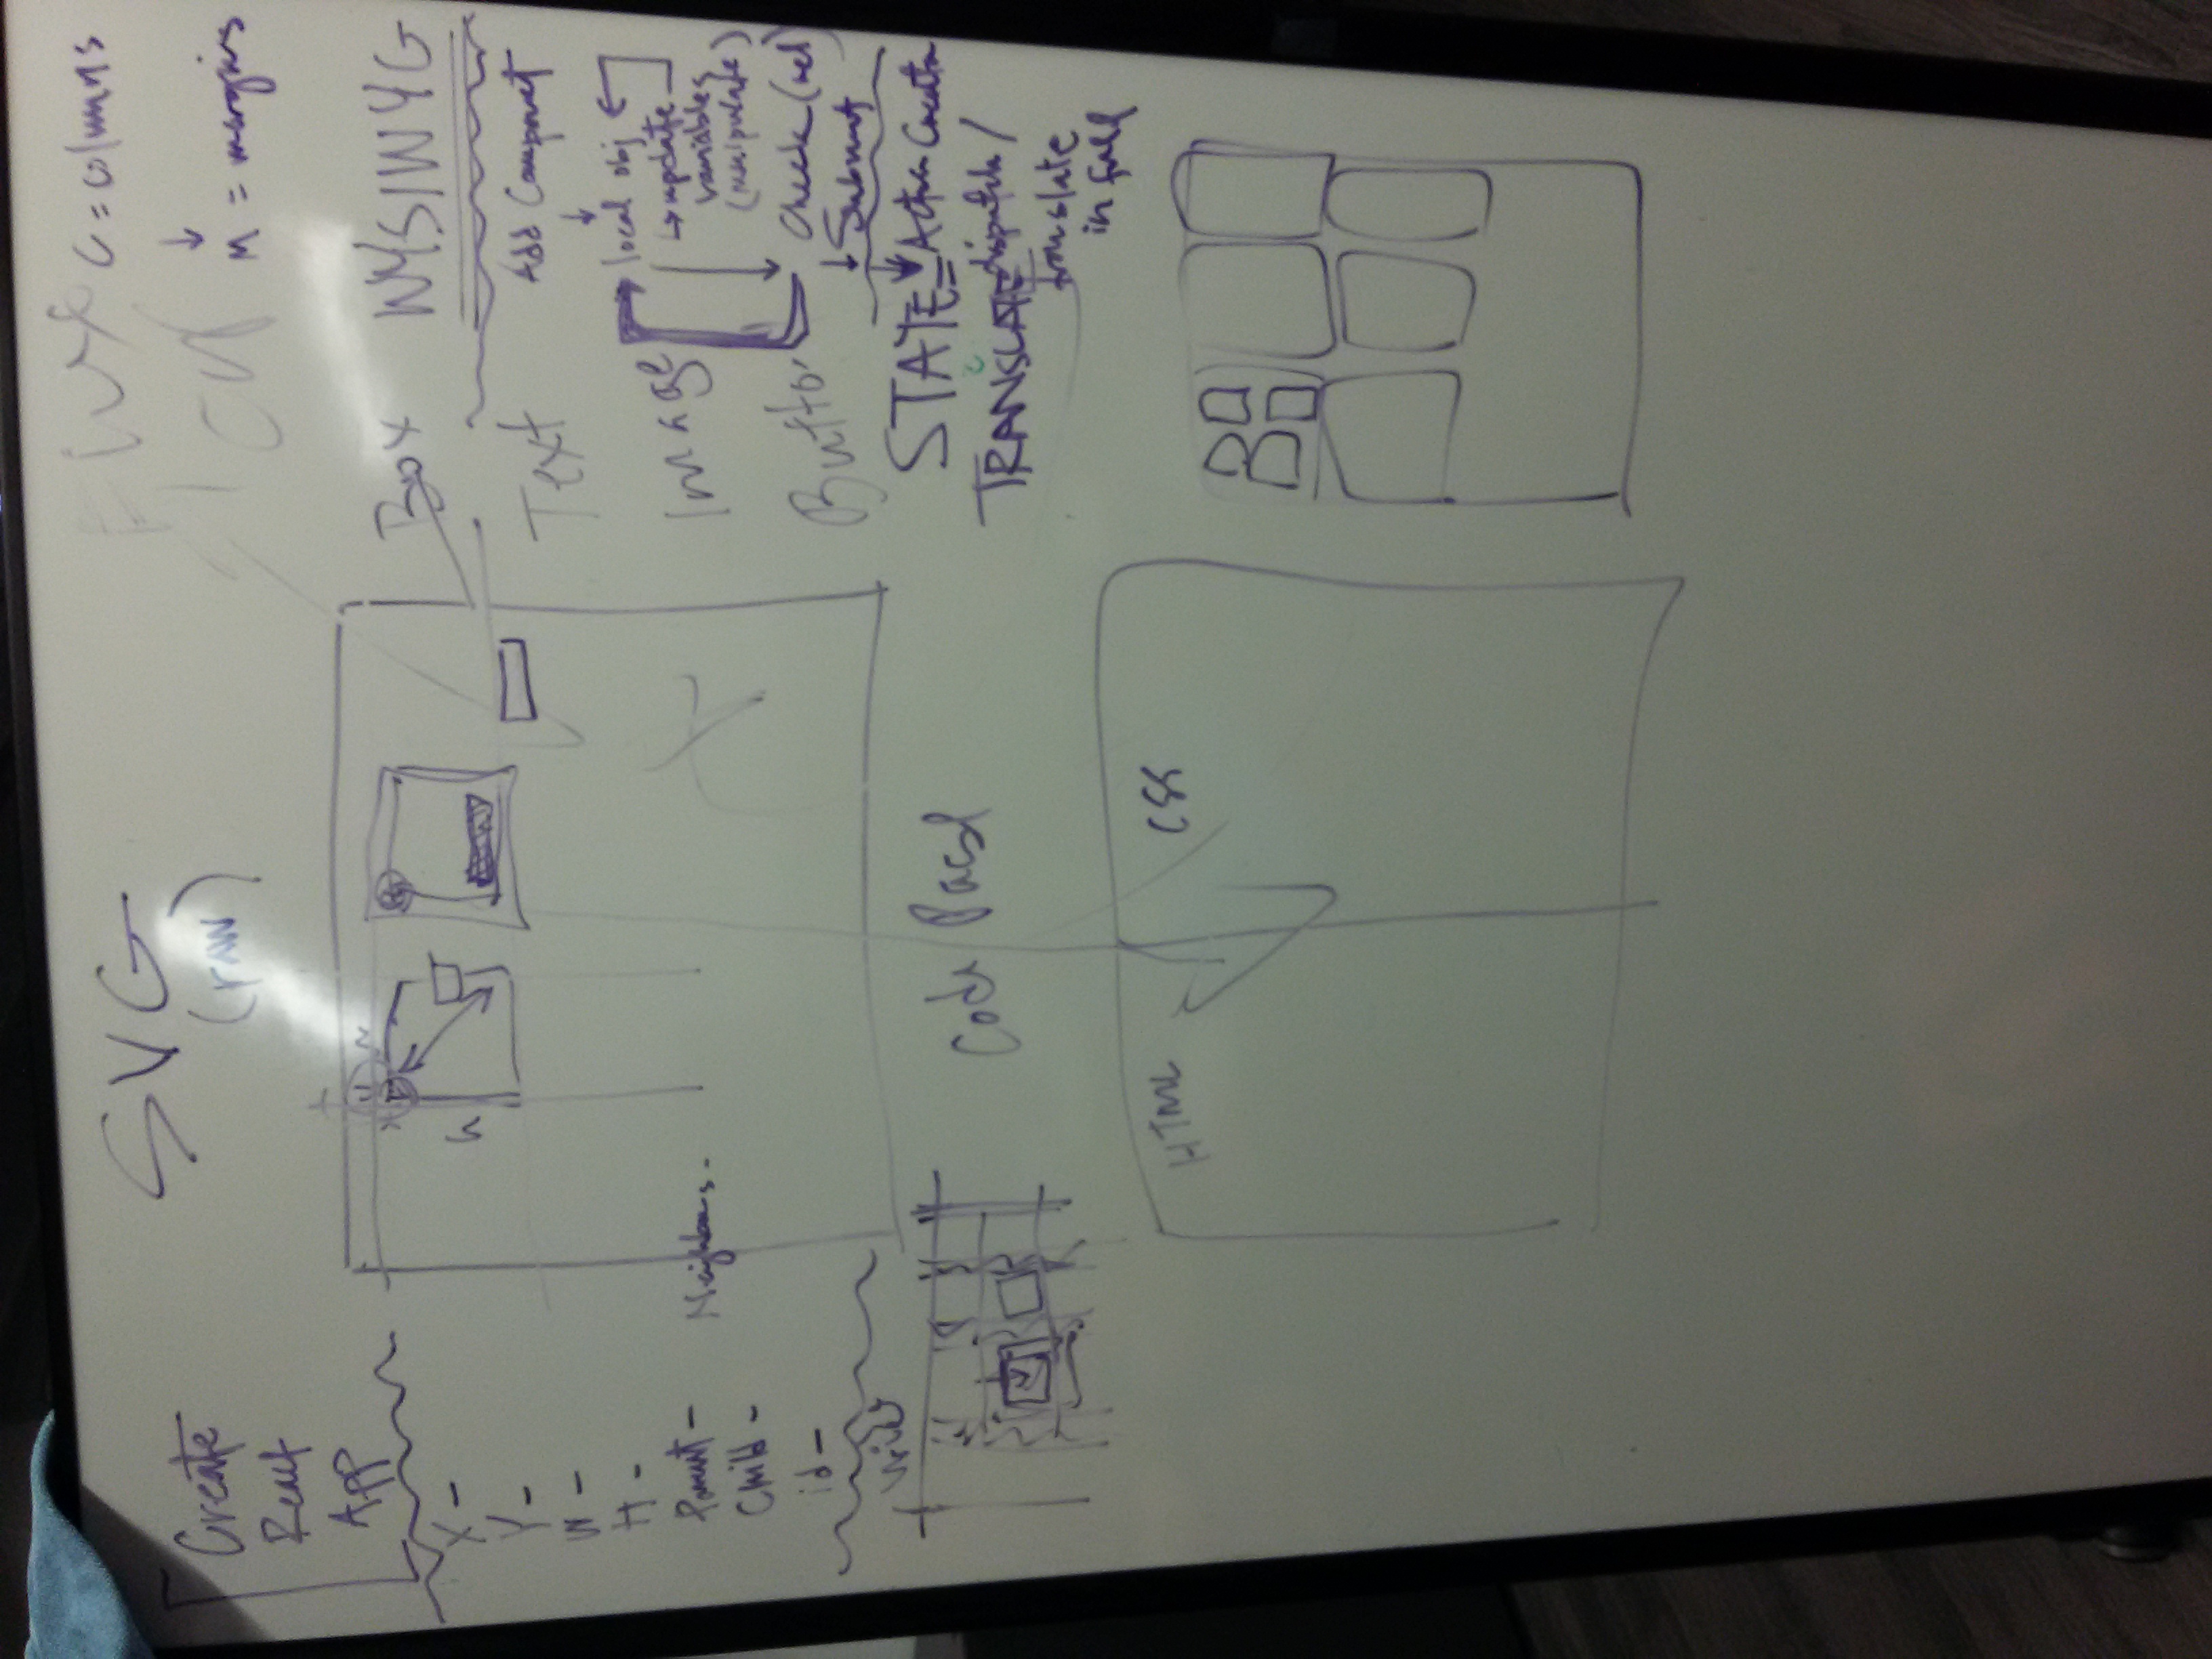 SVG
(raw)
Create
React
App
X -
Y -
W -
H -
Parent -
Child -
id -
Neighbors -
h
Flux
C = columns
↓
M = margins
Box
Text
Image
Button
WYSIWYG
Add Componet
↓
local obj
↳ update
variables
(manipulate)
Check (rel)
↓ Submit
STATE = Action Creator
TRANSLATE
dispatch /
translate
in full
Code
HTML
CSS